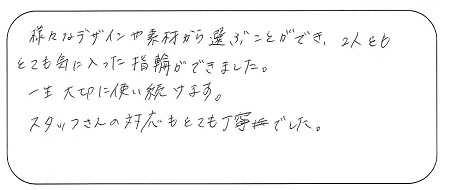 様々なデザインや素材から選ぶことができ、2人とも
とても気に入った指輪ができました。
一生大切に使い続けます。
スタッフさんの対応もとても丁寧でした。